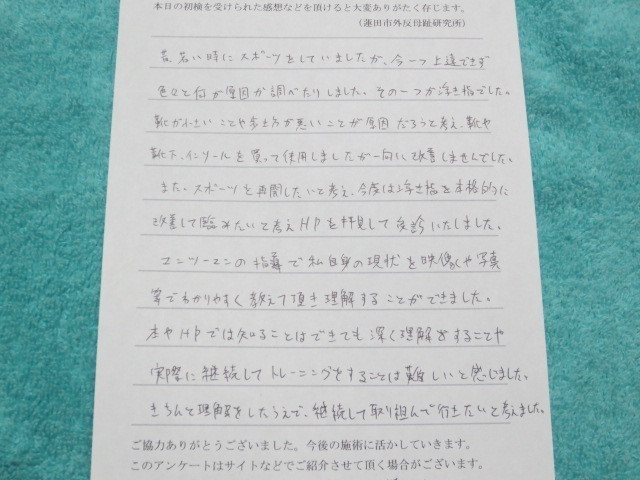 本日の初検を受けられた感想などを頂けると大変ありがたく存じます。
（蓮田市外反母趾研究所）
昔、若い時にスポーツをしていましたが、今一つ上達できず
色々と何が原因か調べたりしました。その一つが浮き指でした。
靴が小さいことや歩き方が悪いことが原因だろうと考え、靴や
靴下、インソールを買って使用しましたが一向に改善しませんでした。
また、スポーツを再開したいと考え、今度は浮き指を本格的に
改善して臨みたいと考えHPを拝見して受診いたしました。
マンツーマンの指導で私自身の現状を映像や写真
等でわかりやすく教えて頂き理解することができました。
本やHPでは知ることはできても深く理解することや
実際に継続してトレーニングをすることは難しいと感じました。
きちんと理解をしたうえで、継続して取り組んで行きたいと考えました。
ご協力ありがとうございました。今後の施術に活かしていきます。
このアンケートはサイトなどでご紹介させて頂く場合がございます。